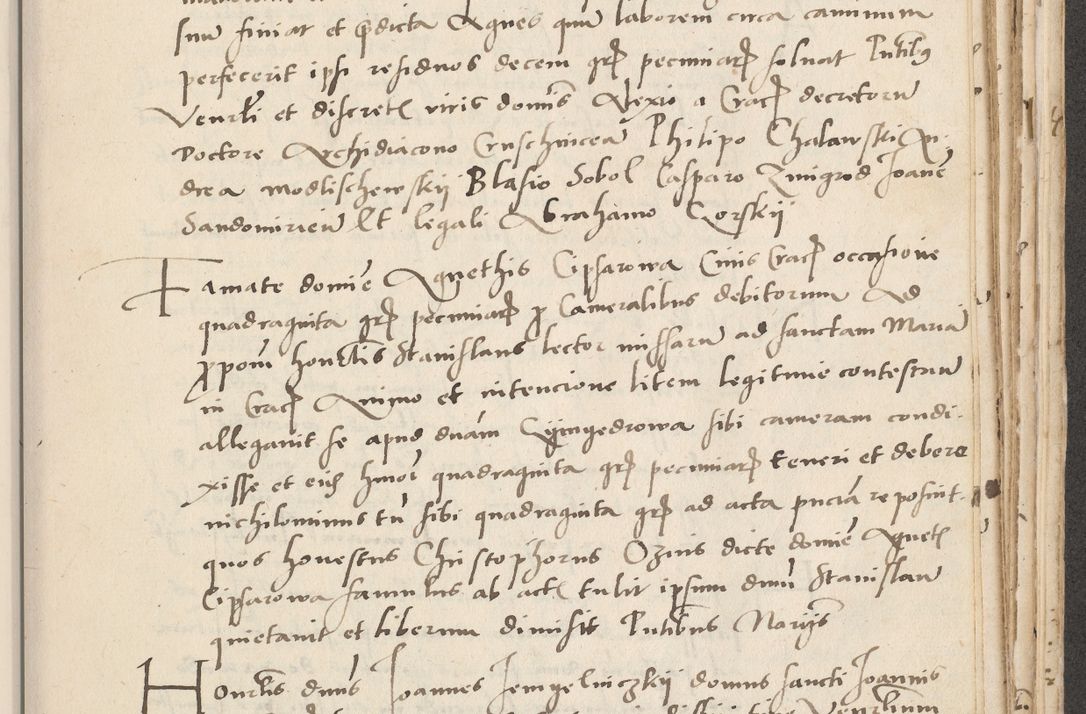 suu finiat et pdicta Agnes quu laborem circa caminum
perfecerit ipsi residuos decem gr pecuniar soluat Pntibus
Venrli et discret viris dominis Alexio a Crac decretoru
Doctore Archidiacono Cruschuicen Philipo Chalawski An-
drea modlischewskij Blasio Sobol Casparo Zmigrod Joane
Sandomirien Et legali Abrahamo Gorskij
Famate domine Agnethis Cipsarowa Civis Crac occasione
quadraginta gr pecuniar p Cameralibus debitorum Ad
pponi honestis Stanislaus lector missaru ad sanctam Maria
in Crac Animo et intencione litem legitime contestan
allegauit se apud dnam sibi cameram condi-
xisse et eisd hmoi quadraginta gr pecuniar teneri et debere
nichilominus tn sibi quadraginta gr ad acta pncia reposuit
quos honestus Christophorus Ozius dicte domine Agnet
Cipsarowa famulus ab act tulit ipsum dnm Stanislau
quietauit et liberum dimisit Pntibus Norijs
Honrlis dnus Joannes Jemyelniczkij domus sancti Joannis
Venrlium